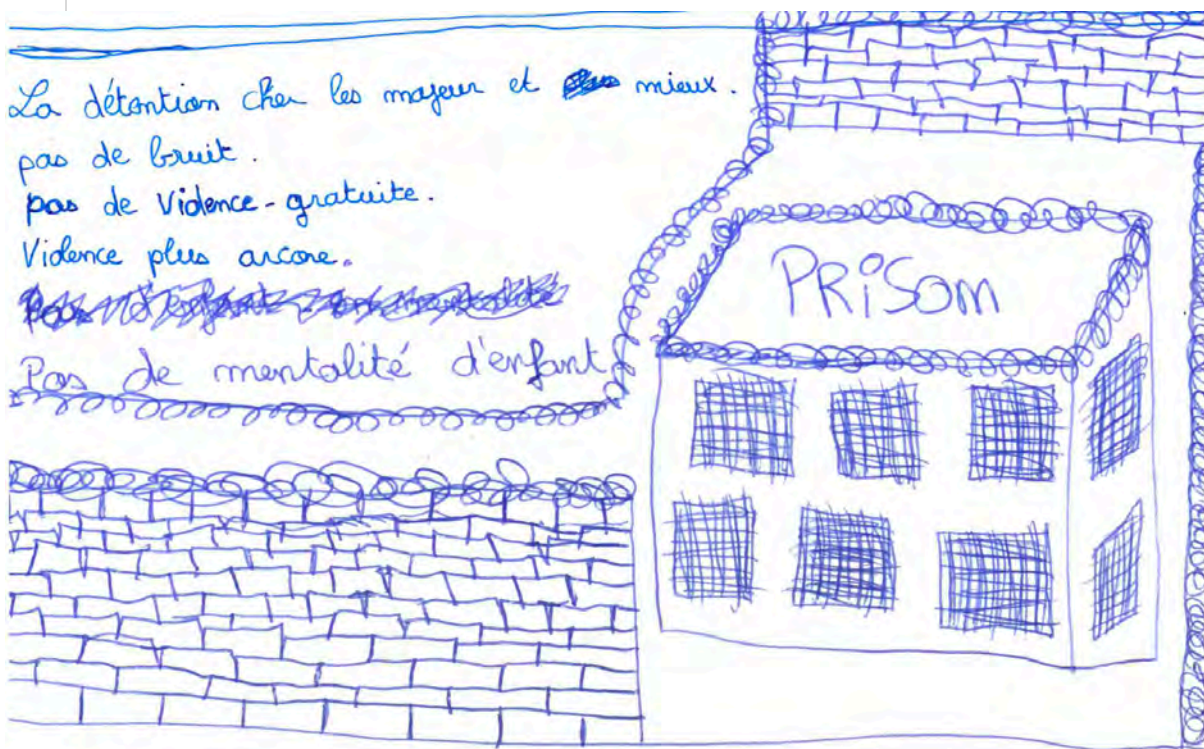 La détention cher les majeur et mieux.
pas de bruit.
pas de Violence-gratuite.
Violence plus arcore.
Pas de mentalité d'enfant
PRiSom